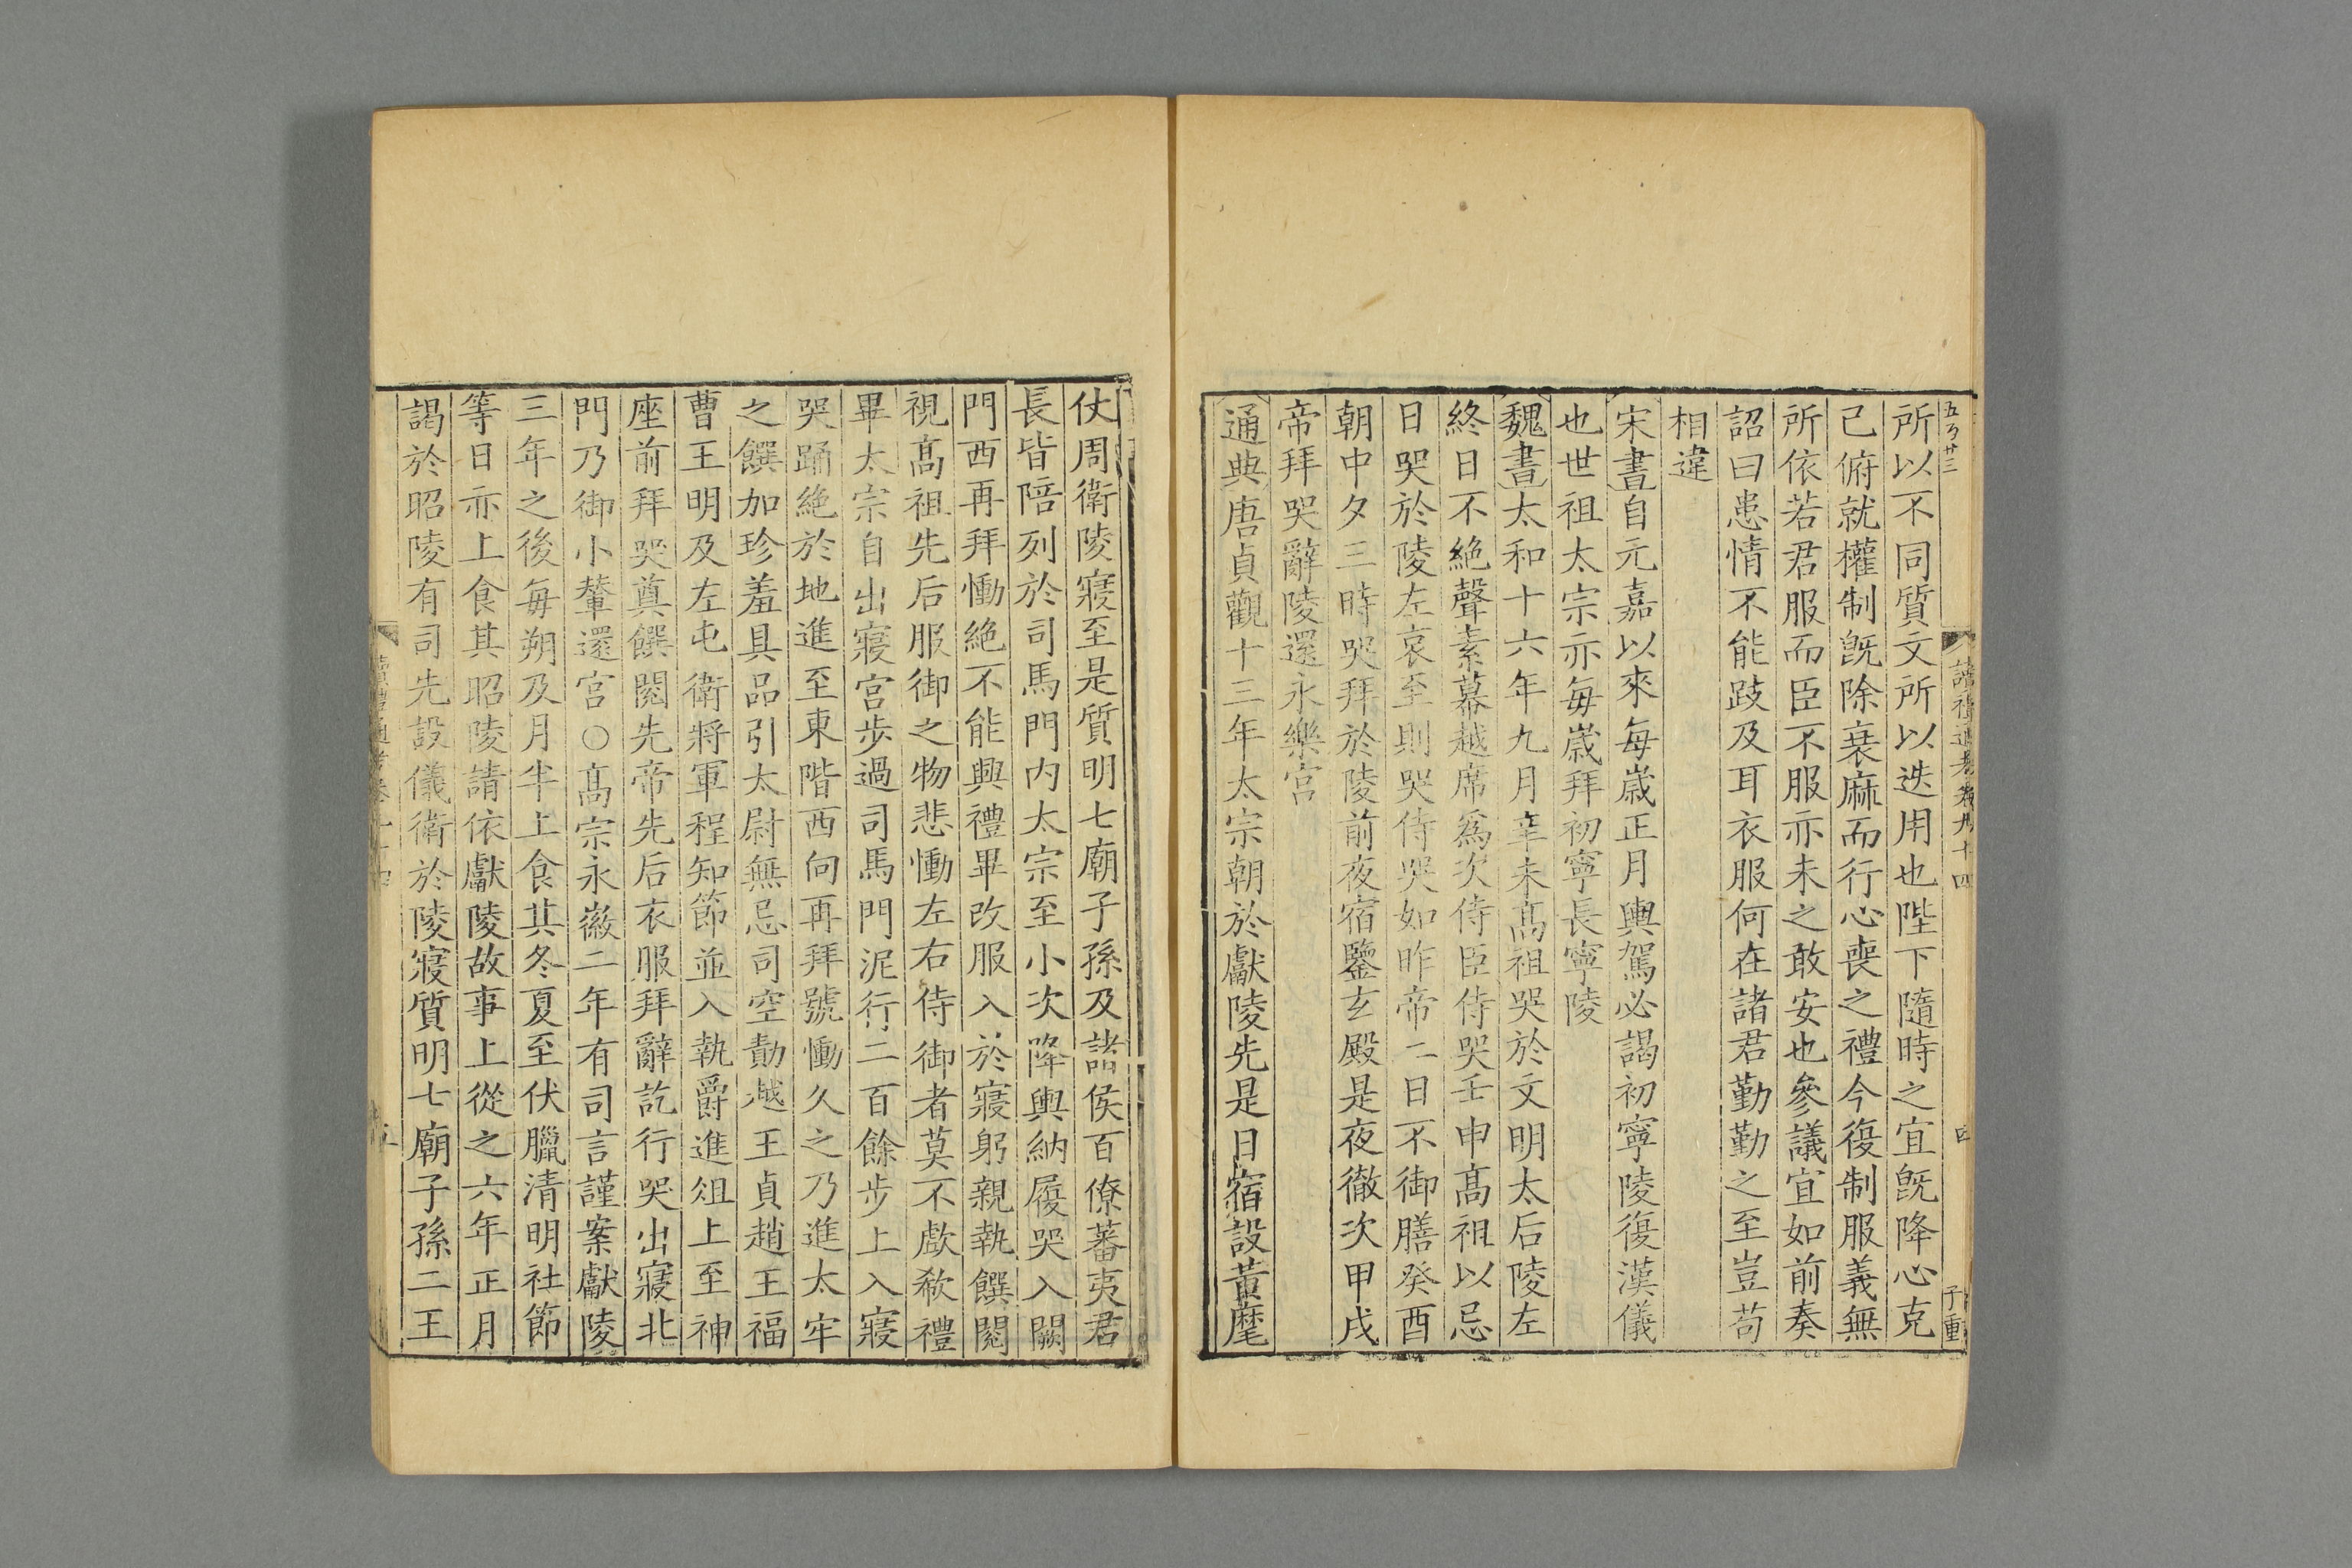 所以不同質文所以迭用也陛下隨時之宜既降心克
己俯就權制既除衰麻而行心喪之禮今復制服義無
所依若君服而臣不服亦未之敢安也參議宜如前奏
詔曰患情不能跂及耳衣服何在諸君勤勤之至豈苟
相違
宋書自元嘉以來每歲正月輿駕必謁初寧陵復漢儀
也世祖太宗亦每歲拜初寧長寧陵
魏書太和十六年九月辛未髙祖哭於文明太后陵左
終日不絶聲素幕越席爲次侍臣侍哭壬申髙祖以忌
日哭於陵左哀至則哭侍哭如昨帝二日不御膳癸酉
朝中夕三時哭拜於陵前夜宿鑒玄殿是夜徹次甲戌
帝拜哭辭陵還永樂宮
通典唐貞觀十三年太宗朝於獻陵先是日宿設黃麾
仗周衛陵寢至是質明七廟子孫及諸侯百僚蕃夷君
長皆陪列於司馬門内太宗至小次降輿納履哭入闕
門西再拜慟絶不能興禮畢改服入於寢躬親執饌閲
視髙祖先后服御之物悲慟左右侍御者莫不歔欷禮
畢太宗自出寢宮步過司馬門泥行二百餘步上入寢
哭踊絶於地進至東階西向再拜號慟久之乃進太牢
之饌加珍羞具品引太尉無忌司空勣越王貞趙王福
曹王明及左屯衛將軍程知節並入執爵進俎上至神
座前拜哭奠饌閲先帝先后衣服拜辭訖行哭出寢北
門乃御小輦還宮○髙宗永徽二年有司言謹案獻陵
三年之後每朔及月半上食其冬夏至伏臘清明社節
等日亦上食其昭陵請依獻陵故事上從之六年正月
謁於昭陵有司先設儀衛於陵寢質明七廟子孫二王